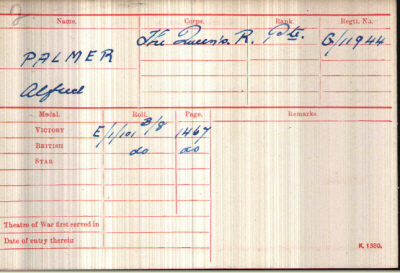 Name. Corps. Rank. Regtl. No.
The Queen's. R. Pte. G/11944
PALMER
Alfred
Medal. Roll. Page. Remarks.
VICTORY E/1/101 B/8 1467
BRITISH do do
STAR
Theatre of War first served in
Date of entry therein
K. 1380.